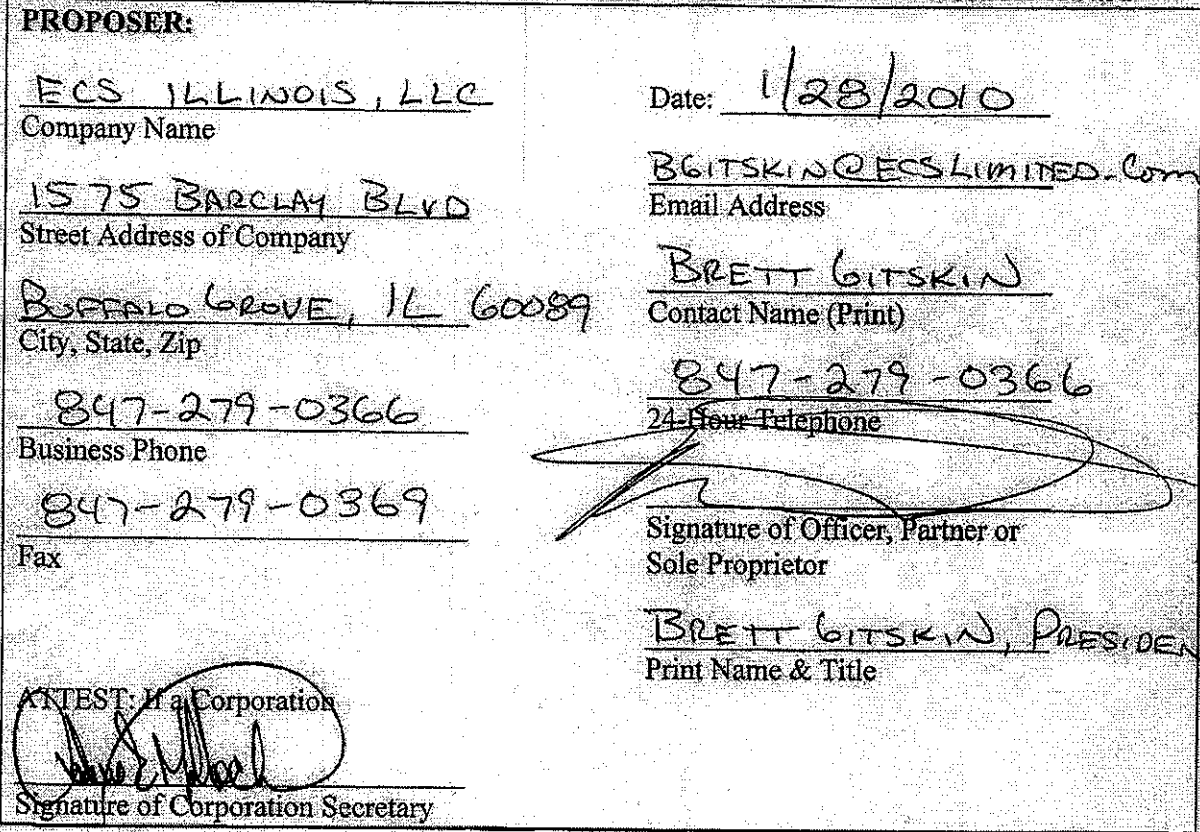 PROPOSER:
ECS ILLINOIS, LLC
Company Name
1575 BARCLAY BLVD
Street Address of Company
BUFFALO GROVE, IL 60089
City, State, Zip
847-279-0366
Business Phone
847-279-0369
Fax
ATTEST: If a Corporation
Signature of Corporation Secretary
Date: 1/28/2010
BGITSKIN@ECSLIMITED.Com
Email Address
BRETT GITSKIN
Contact Name (Print)
847-279-0366
24-Hour Telephone
Signature of Officer, Partner or
Sole Proprietor
BRETT GITSKIN, PRESIDEN
Print Name & Title